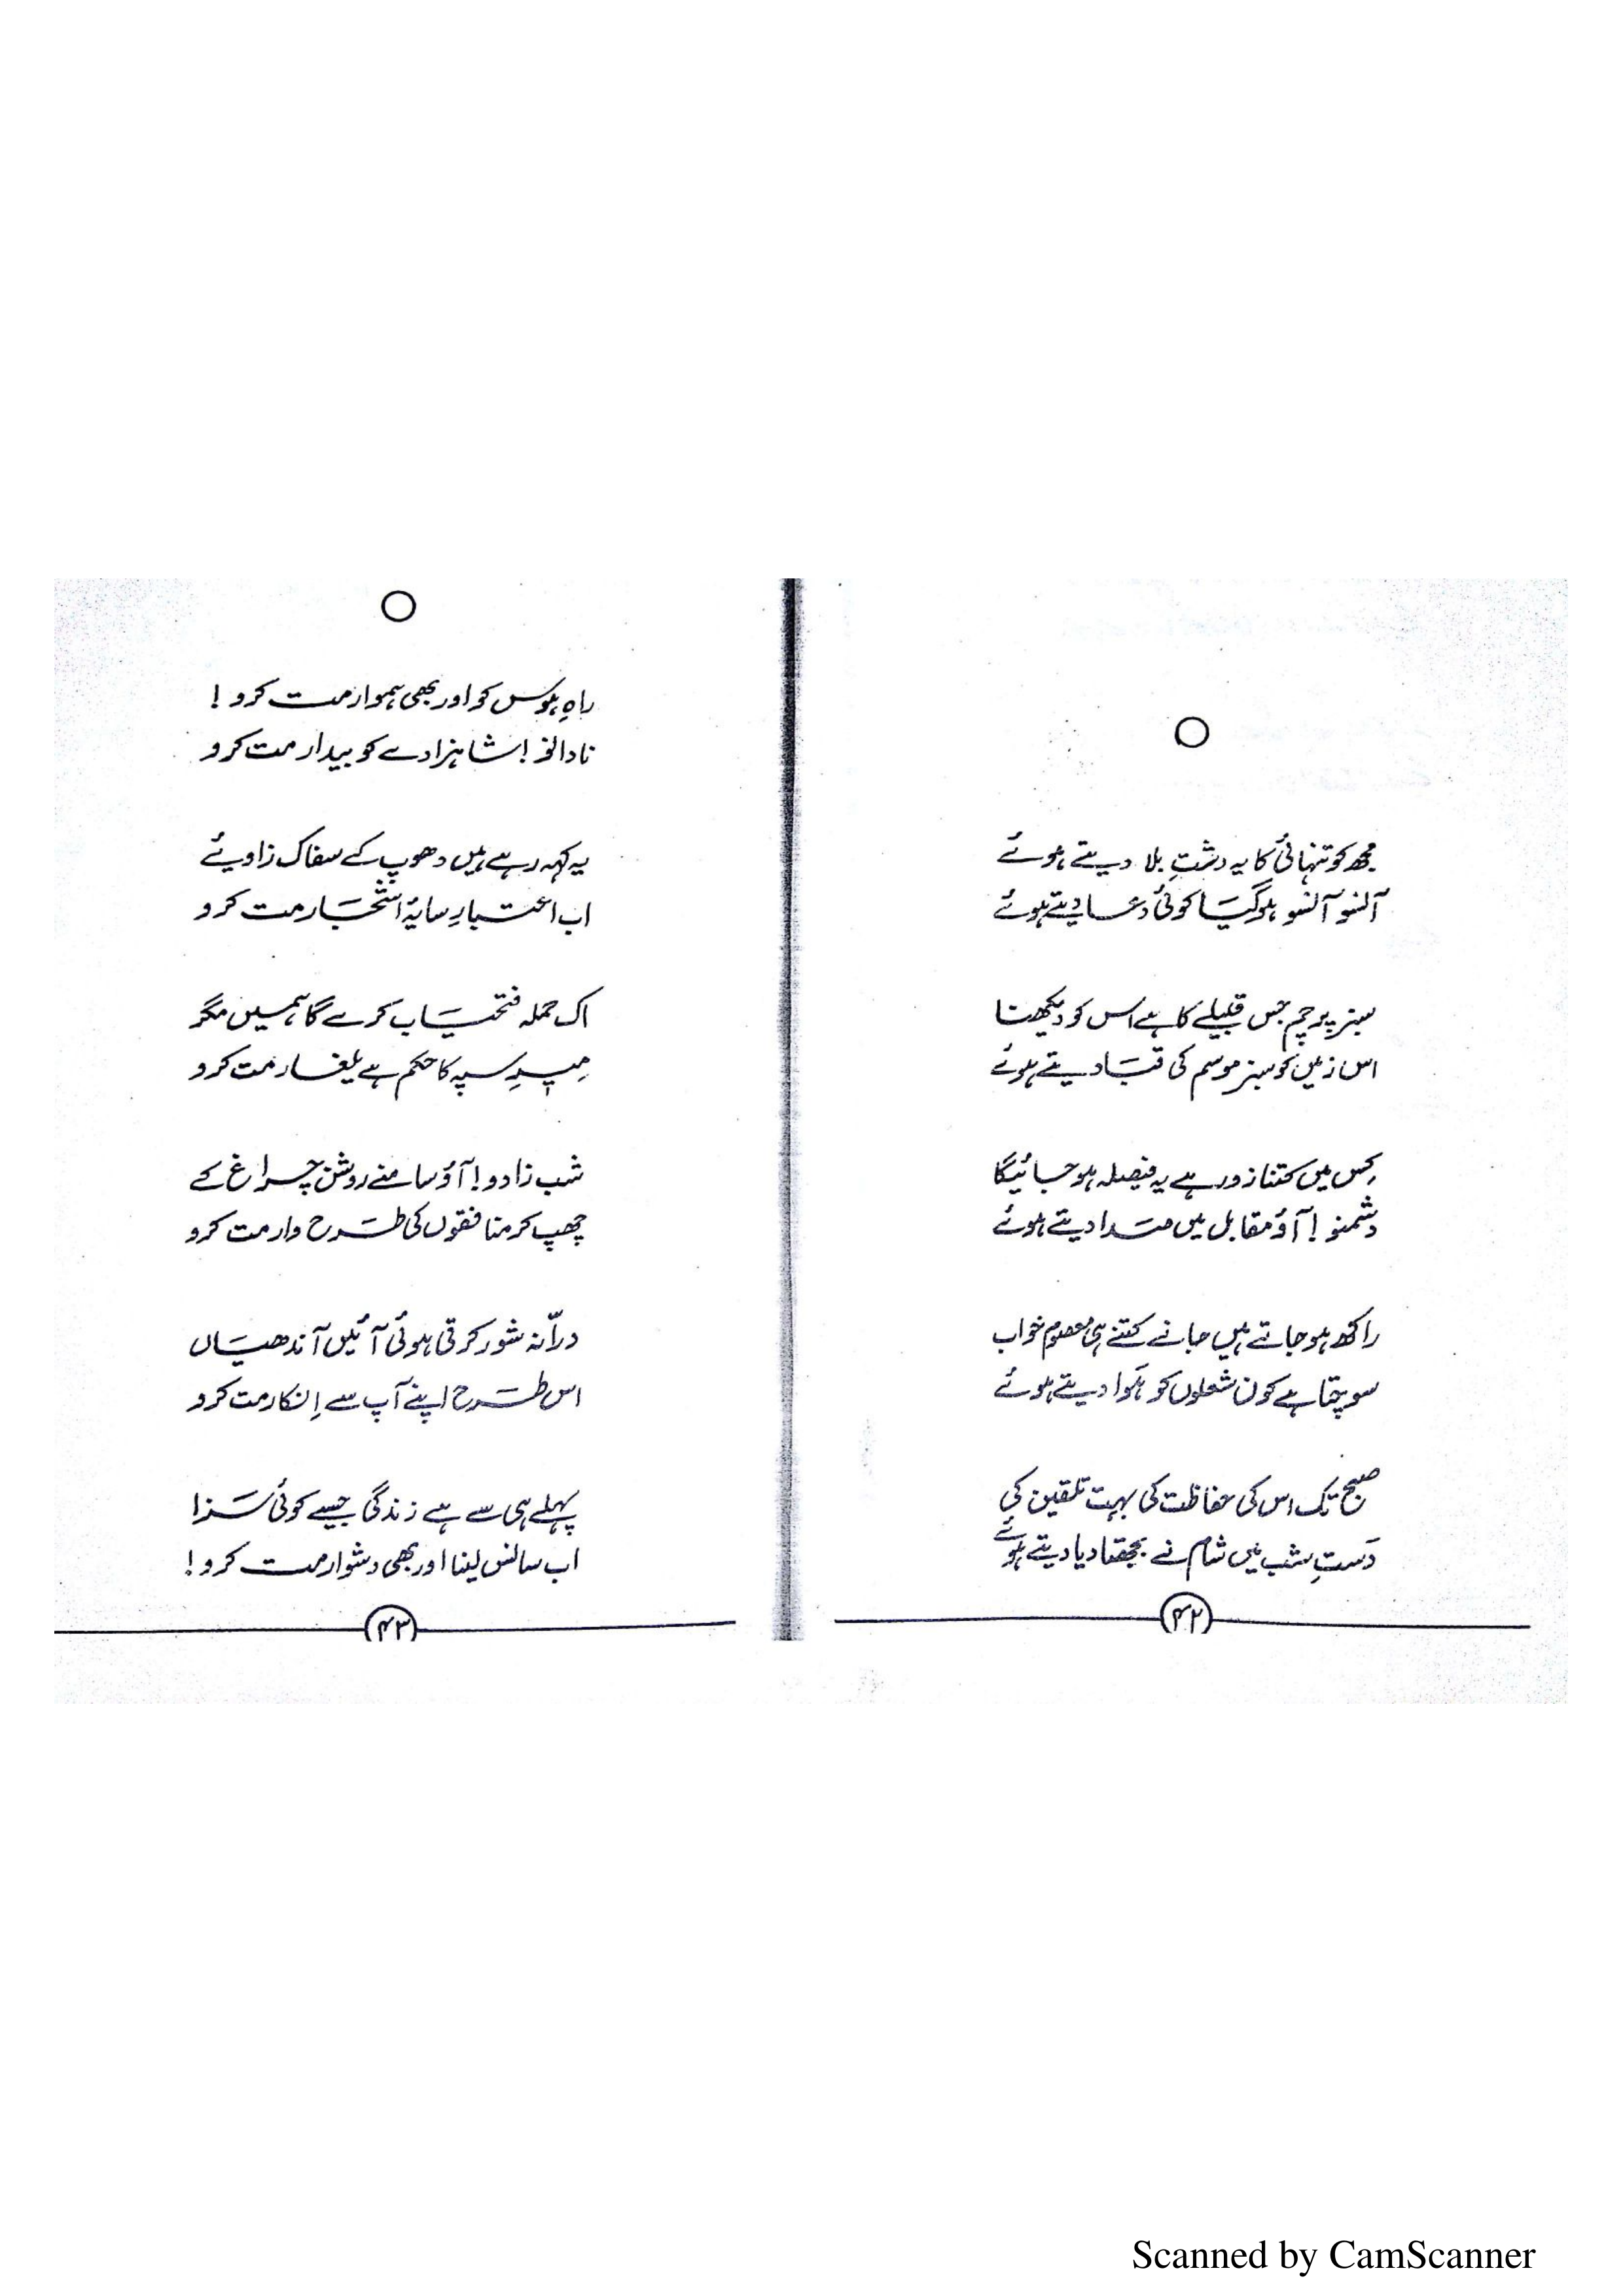 مجھ کو تنہائی کا یہ دشتِ بلا دیتے ہوئے
آنسو آنسو ہو گیا کوئی دعا دیتے ہوئے
سبز پرچم جس قبیلے کا ہے اس کو دیکھنا
اس زمیں کو سبز موسم کی قبا دیتے ہوئے
کِس میں کتنا زور ہے یہ فیصلہ ہو جائیگا
دشمنو! آؤ مقابل میں صدا دیتے ہوئے
راکھ ہو جاتے ہیں جانے کتنے ہی معصوم خواب
سوچتا ہے کون شعلوں کو ہَوا دیتے ہوئے
صبح تک اس کی حفاظت کی بہت تلقین کی
دَستِ شب میں شام نے بجھتا دیا دیتے ہوئے
۴۲
راہِ ہوس کو اور بھی ہموار مت کرو!
نادانو! شاہزادے کو بیدار مت کرو
یہ کہہ رہے ہیں دھوپ کے سفاک زاویئے
اب اعتبارِ سایۂ اشجار مت کرو
اک حملہ فتحیاب کرے گا ہمیں مگر
مِیرِ سپہ کا حکم ہے یلغار مت کرو
شب زادو! آؤ سامنے روشن چراغ کے
چھپ کر منافقوں کی طرح وار مت کرو
درّانہ شور کرتی ہوئی آئیں آندھیاں
اس طرح اپنے آپ سے اِنکار مت کرو
پہلے ہی سے ہے زندگی جیسے کوئی سَزا
اب سانس لینا اور بھی دشوار مت کرو!
۴۳
Scanned by CamScanner